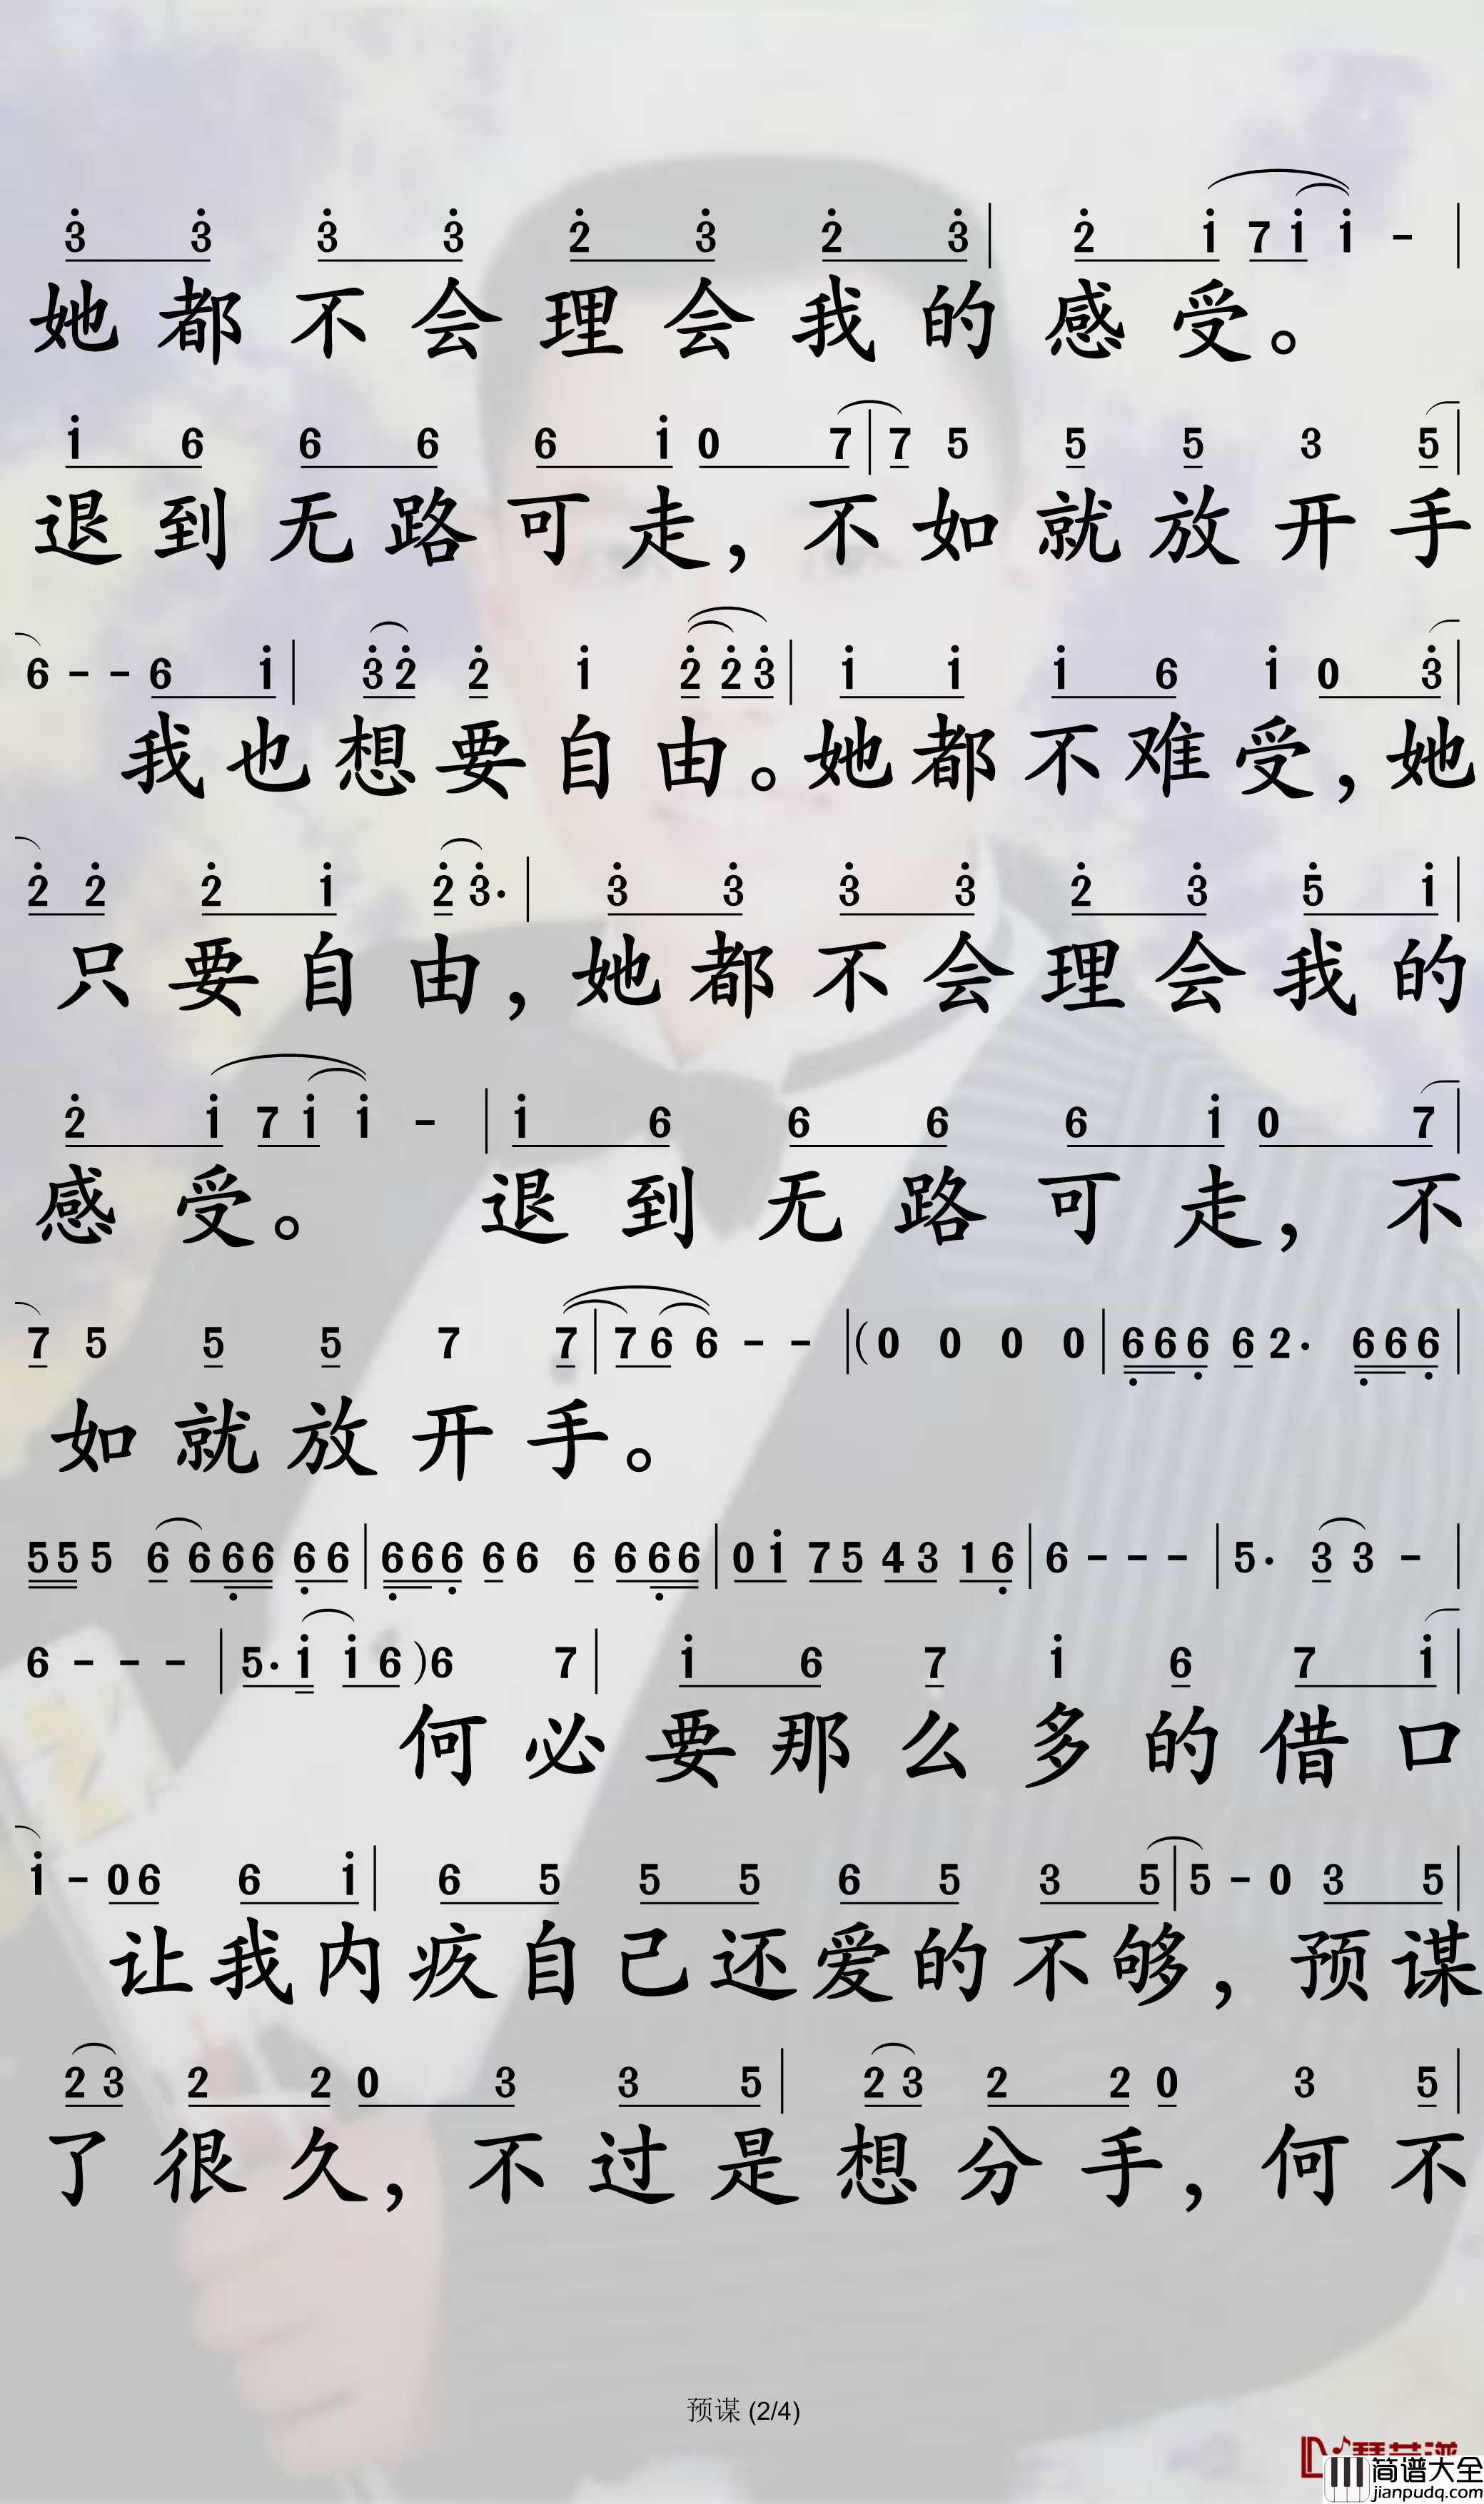 3̇ 3̇ 3̇ 3̇ 2̇ 3̇ 2̇ 3̇ | 2̇ 1̇ 7 1̇ 1̇ - |
她都不会理会我的感受。
1̇ 6 6 6 6 1̇ 0 7 | 7 5 5 5 3 5 |
退到无路可走，不如就放开手
6 - - 6 1̇ | 3̇ 2̇ 2̇ 1̇ 2̇ 2̇ 3̇ | 1̇ 1̇ 1̇ 6 1̇ 0 3̇ |
我也想要自由。她都不难受，她
2̇ 2̇ 2̇ 1̇ 2̇ 3̇· | 3̇ 3̇ 3̇ 3̇ 2̇ 3̇ 5̇ 1̇ |
只要自由，她都不会理会我的
2̇ 1̇ 7 1̇ 1̇ - | 1̇ 6 6 6 6 1̇ 0 7 |
感受。退到无路可走，不
7 5 5 5 7 7 | 7 6 6 - - | (0 0 0 0 | 6̣ 6 6̣ 6 2· 6̣ 6 6̣ |
如就放开手。
5 5 5 6 6 6̣ 6 6̣ 6 | 6̣ 6 6̣ 6 6 6 6 6̣ 6 | 0 1̇ 7 5 4 3 1 6̣ | 6 - - - | 5· 3 3 - |
6 - - - | 5· 1̇ 1̇ 6 ) 6 7 | 1̇ 6 7 1̇ 6 7 1̇ |
何必要那么多的借口
1̇ - 0 6 6 1̇ | 6 5 5 5 6 5 3 5 | 5 - 0 3 5 |
让我内疚自己还爱的不够，预谋
2 3 2 2 0 3 3 5 | 2 3 2 2 0 3 5 |
了很久，不过是想分手，何不
预谋 (2/4)
简谱大全
jianpudq.com